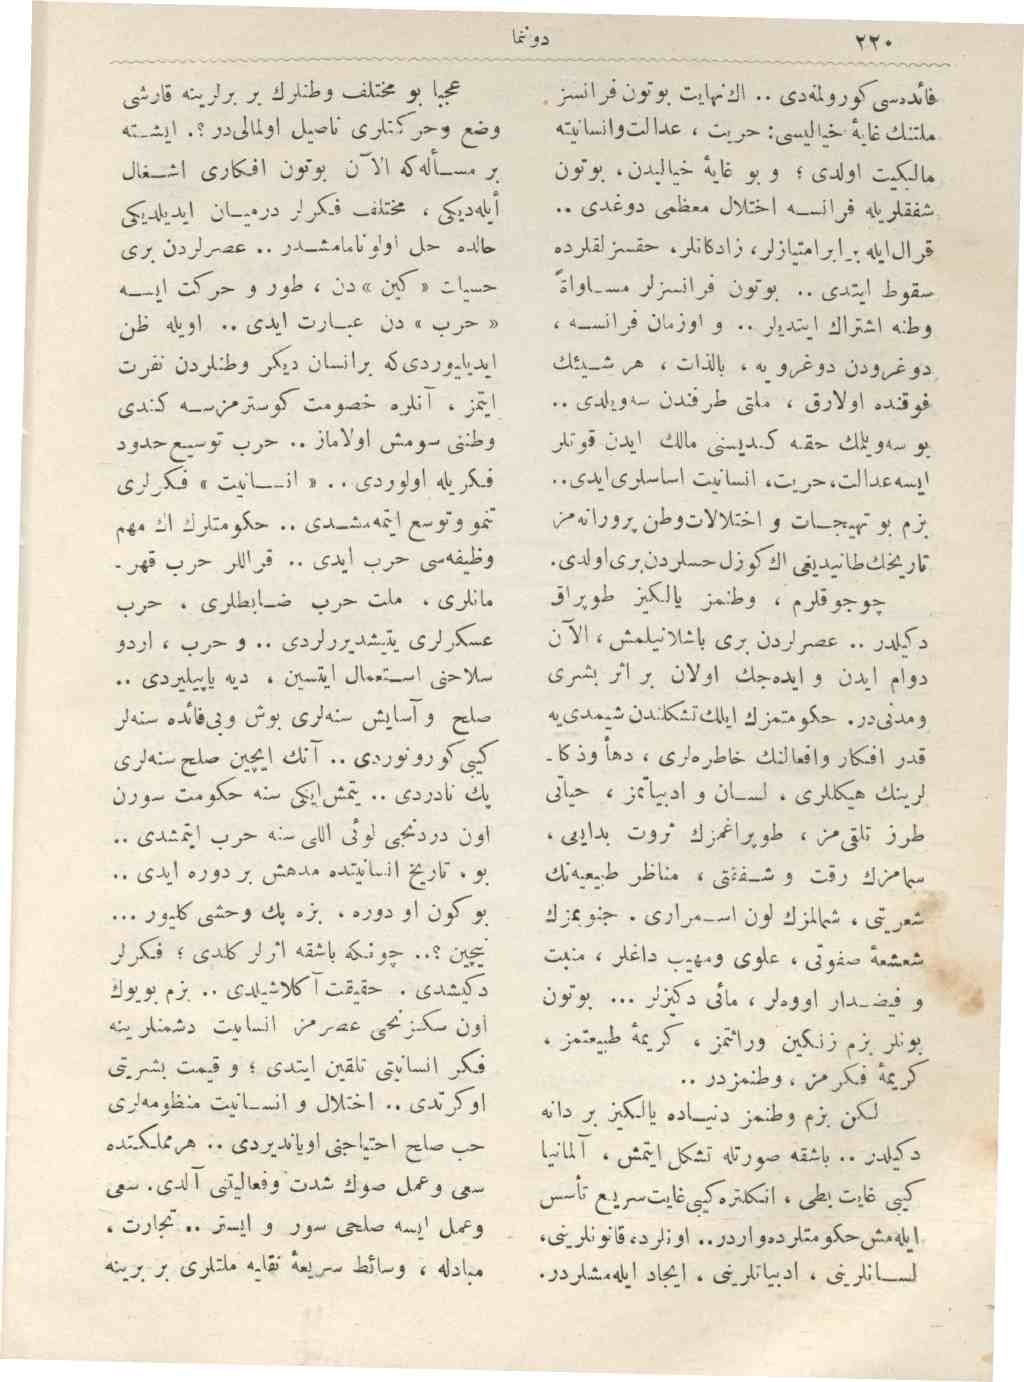 ٢٢٠
دوننما
فائده‌سی كورولمه‌دی .. اك نهایت بوتون فرانسز
ملتنك غایهٔ خیالیسی: حریت ، عدالت وانسانیته
مالكیت اولدی ؛ و بو غایهٔ خیالیدن، بوتون
شفقلریله فرانسه اختلال معظمی دوغدی ..
قرال ایله برابر امتیازلر، زادكانلر، حقسزلقلرده
سقوط ایتدی .. بوتون فرانسزلر مساواةً
وطنه اشتراك ایتدیلر .. و اوزمان فرانسه ،
دوغرودن دوغرویه ، بالذات ، هر شیئك
فوقنده اولارق ، ملتی طرفندن سه‌ویلدی ..
بو سه‌ویلمك حقنه كندیسنی مالك ایدن قوتلر
ایسه عدالت، حریت، انسانیت اساسلری ایدی..
بزم بو تهییجات و اختلالات وطن پرورانه‌مز
تاریخك طانیدیغی اك كوزل حسلردن بری اولدی.
چوجوقلرم ، وطنمز یالكیز طوپراق
دكیلدر .. عصرلردن بری باشلانیلمش ، الآن
دوام ایدن و ایده‌جك اولان بر اثر بشری
ومدنی‌در. حكومتمزك ایلك تشكلندن شیمدی‌یه
قدر افكار وافعالنك خاطره‌لری ، دهأ وذكا-
لرینك هیكللری ، لسان و ادبیاتمز ، حیاتی
طرز تلقی‌مز ، طوپراغمزك ثروت بدایی ،
سمامزك رقت و شفقتی ، مناظر طبیعیه‌نك
شعریتی ، شمالمزك لون اسمراری . جنوبمزك
شعشعهٔ صفوتی ، علوی ومهیب داغلر ، منبت
و فیضدار اووه‌لر ، مائی دكیزلر ... بوتون
بونلر بزم زنكین وراثتمز ، كریمهٔ طبیعتمز ،
كریمهٔ فكرمز ، وطنمزدر ..
لكن بزم وطنمز دنیاده یالكیز بر دانه
دكیلدر .. باشقه صورتله تشكل ایتمش ، آلمانیا
كیبی غایت بطی ، انكلتره كیبی غایت سریع تأسس
ایله‌مش حكومتلرده واردر.. اونلرد، قانونلرینی،
لسانلرینی ، ادبیاتلرینی ، ایجاد ایله‌مشلردر.
عجبا بو مختلف وطنلرك بر برلرینه قارشی
وضع وحركتلری ناصیل اولمالی‌در ؟. ایشته
بر مسأله‌كه الآن بوتون افكاری اشغال
أیله‌دیكی ، مختلف فكرلر درمیان ایدیلدیكی
حالده حل اولونامامشدر .. عصرلردن بری
حسیات « كین » دن ، طور و حركت ایسه
« حرب » دن عبارت ایدی .. اویله ظن
ایدیلیوردی‌كه برانسان دیكر وطنلردن نفرت
ایتمز ، آنلره خصومت كوسترمزسه كندی
وطننی سومش اولاماز .. حرب توسیع حدود
فكریله اولوردی .. « انسانیت » فكرلری
نمو وتوسع ایتمه‌مشدی .. حكومتلرك اك مهم
وظیفه‌سی حرب ایدی .. قراللر حرب قهر-
مانلری ، ملت حرب ضابطلری ، حرب
عسكرلری یتیشدیررلردی .. و حرب ، اردو
سلاحنی استعمال ایتسین ، دیه یاپیلیردی ..
صلح و آسایش سنه‌لری بوش وبی‌فائده سنه‌لر
كیبی كورونوردی .. آنك ایچین صلح سنه‌لری
پك نادردی .. یتمش ایكی سنه حكومت سورن
اون دردنجی لوئی اللی سنه حرب ایتمشدی ..
بو ، تاریخ انسانیتده مدهش بر دوره ایدی ..
بوكون او دوره ، بزه پك وحشی كلیور ...
نیچین ؟.. چونكه باشقه اثرلر كلدی ؛ فكرلر
دكیشدی . حقیقت آكلاشیلدی .. بزم بویوك
اون سكزنجی عصرمز انسانیت دشمنلرینه
فكر انسانیتی تلقین ایتدی ؛ و قیمت بشریتی
اوكرتدی .. اختلال و انسانیت منظومه‌لری
حب صلح احتیاجنی اویاندیردی .. هرمملكتده
سعی وعمل صوك شدت وفعالیتنی آلدی. سعی
وعمل ایسه صلحی سور و ایستر .. تجارت ،
مبادله ، وسائط سریعهٔ نقلیه ملتلری بر برینه